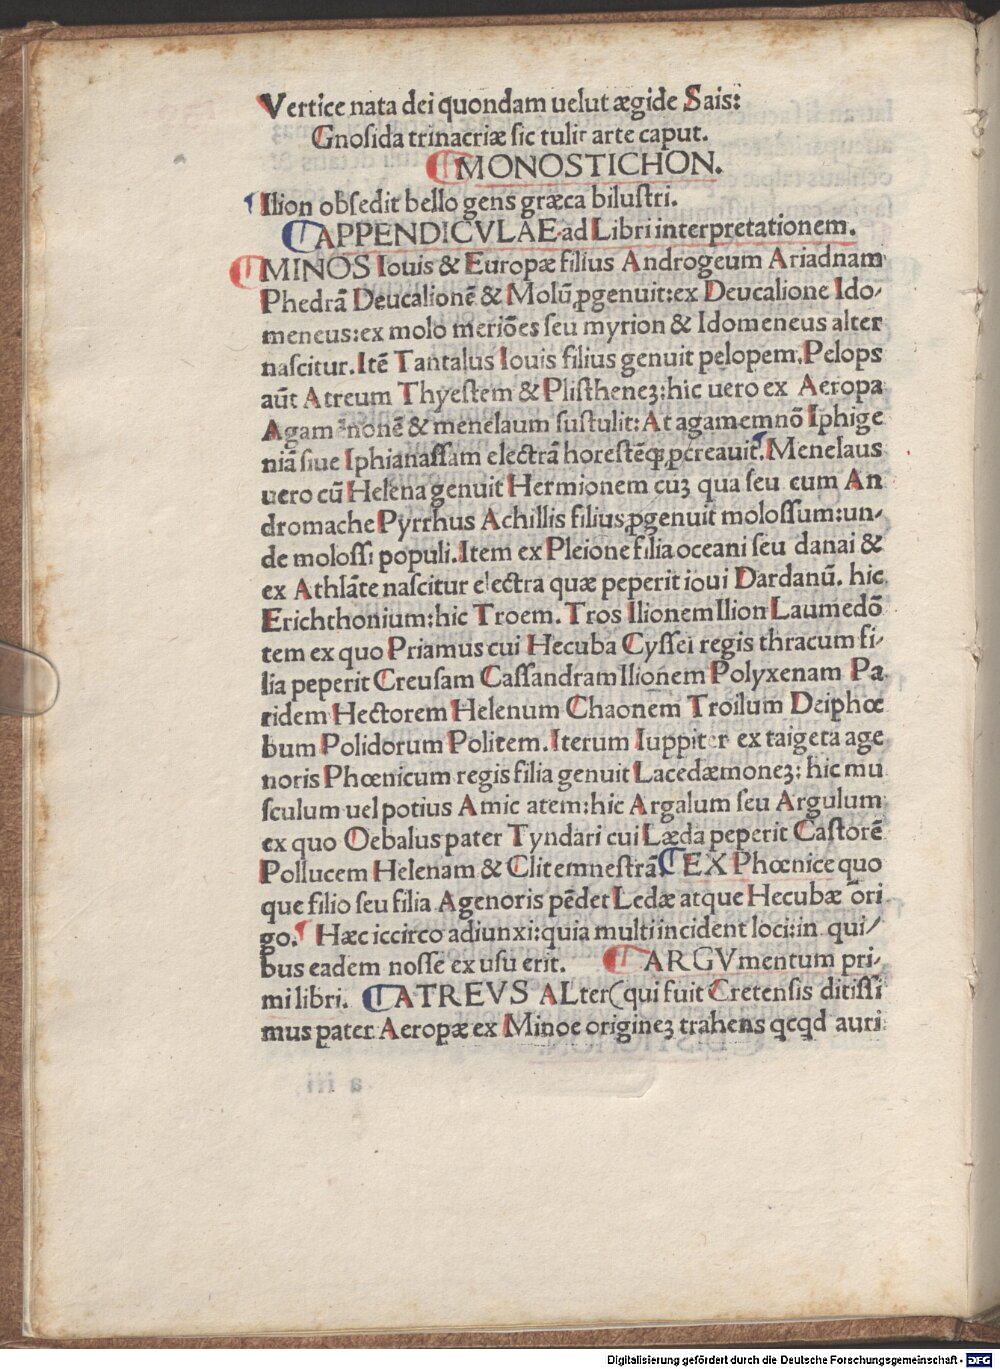 Vertice nata dei quondam uelut ægide Sais:
Gnosida trinacriæ sic tulit arte caput.
MONOSTICHON.
Ilion obsedit bello gens græca bilustri.
APPENDICVLAE ad Libri interpretationem.
MINOS Iouis & Europæ filius Androgeum Ariadnam
Phedrã Deucalionẽ & Molũ ꝓgenuit: ex Deucalione Ido/
meneus: ex molo meriões seu myrion & Idomeneus alter
nascitur. Itẽ Tantalus Iouis filius genuit pelopem. Pelops
aũt Atreum Thyestem & Plistheneꝫ: hic uero ex Aeropa
Agamẽnonẽ & menelaum sustulit: At agamemnõ Iphige
niã siue Iphianassam electrã horestẽqꝫ ꝓcreauit. Menelaus
uero cũ Helena genuit Hermionem cuꝫ qua seu cum An
dromache Pyrrhus Achillis filius ꝓgenuit molossum: un/
de molossi populi. Item ex Pleione filia oceani seu danai &
ex Athlãte nascitur electra quæ peperit ioui Dardanũ. hic
Erichthonium: hic Troem. Tros Ilionem Ilion Laumedõ
tem ex quo Priamus cui Hecuba Cyssei regis thracum fi/
lia peperit Creusam Cassandram Ilionem Polyxenam Pa
ridem Hectorem Helenum Chaonem Troilum Deiphœ
bum Polidorum Politem. Iterum Iuppiter ex taigeta age
noris Phœnicum regis filia genuit Lacedæmoneꝫ: hic mu
sculum uel potius Amic atem: hic Argalum seu Argulum
ex quo Oebalus pater Tyndari cui Læda peperit Castorẽ
Pollucem Helenam & Clitemnestrã EX Phœnice quo
que filio seu filia Agenoris pẽdet Ledæ atque Hecubæ ori
go. Hæc iccirco adiunxi: quia multi incident loci: in qui/
bus eadem nosse ex usu erit. ARGVmentum pri/
mi libri. ATREVS ALter (qui fuit Cretensis ditissi
mus pater Aeropæ ex Minoe origineꝫ trahens qcqd auri
Digitalisierung gefördert durch die Deutsche Forschungsgemeinschaft - DFG